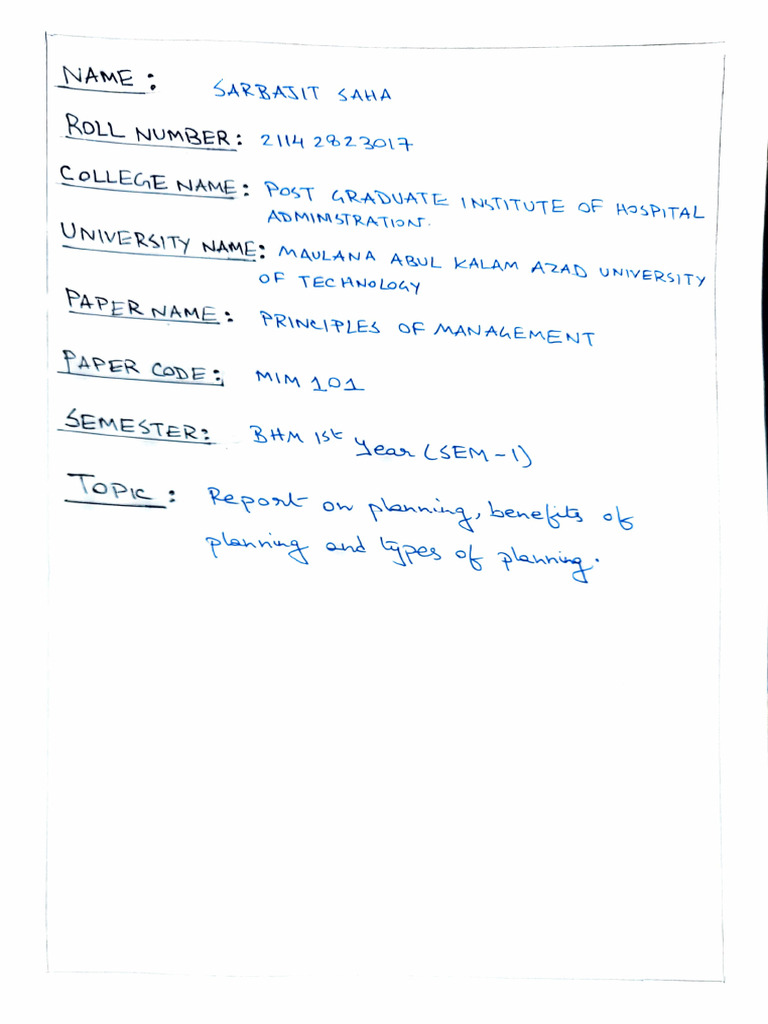 NAME: SARBAJIT SAHA
ROLL NUMBER: 21142823017
COLLEGE NAME: POST GRADUATE INSTITUTE OF HOSPITAL
ADMINISTRATION.
UNIVERSITY NAME: MAULANA ABUL KALAM AZAD UNIVERSITY
OF TECHNOLOGY
PAPER NAME: PRINCIPLES OF MANAGEMENT
PAPER CODE: MIM 101
SEMESTER: BHM 1st year (SEM-1)
TOPIC: Report on planning, benefits of
planning and types of planning.